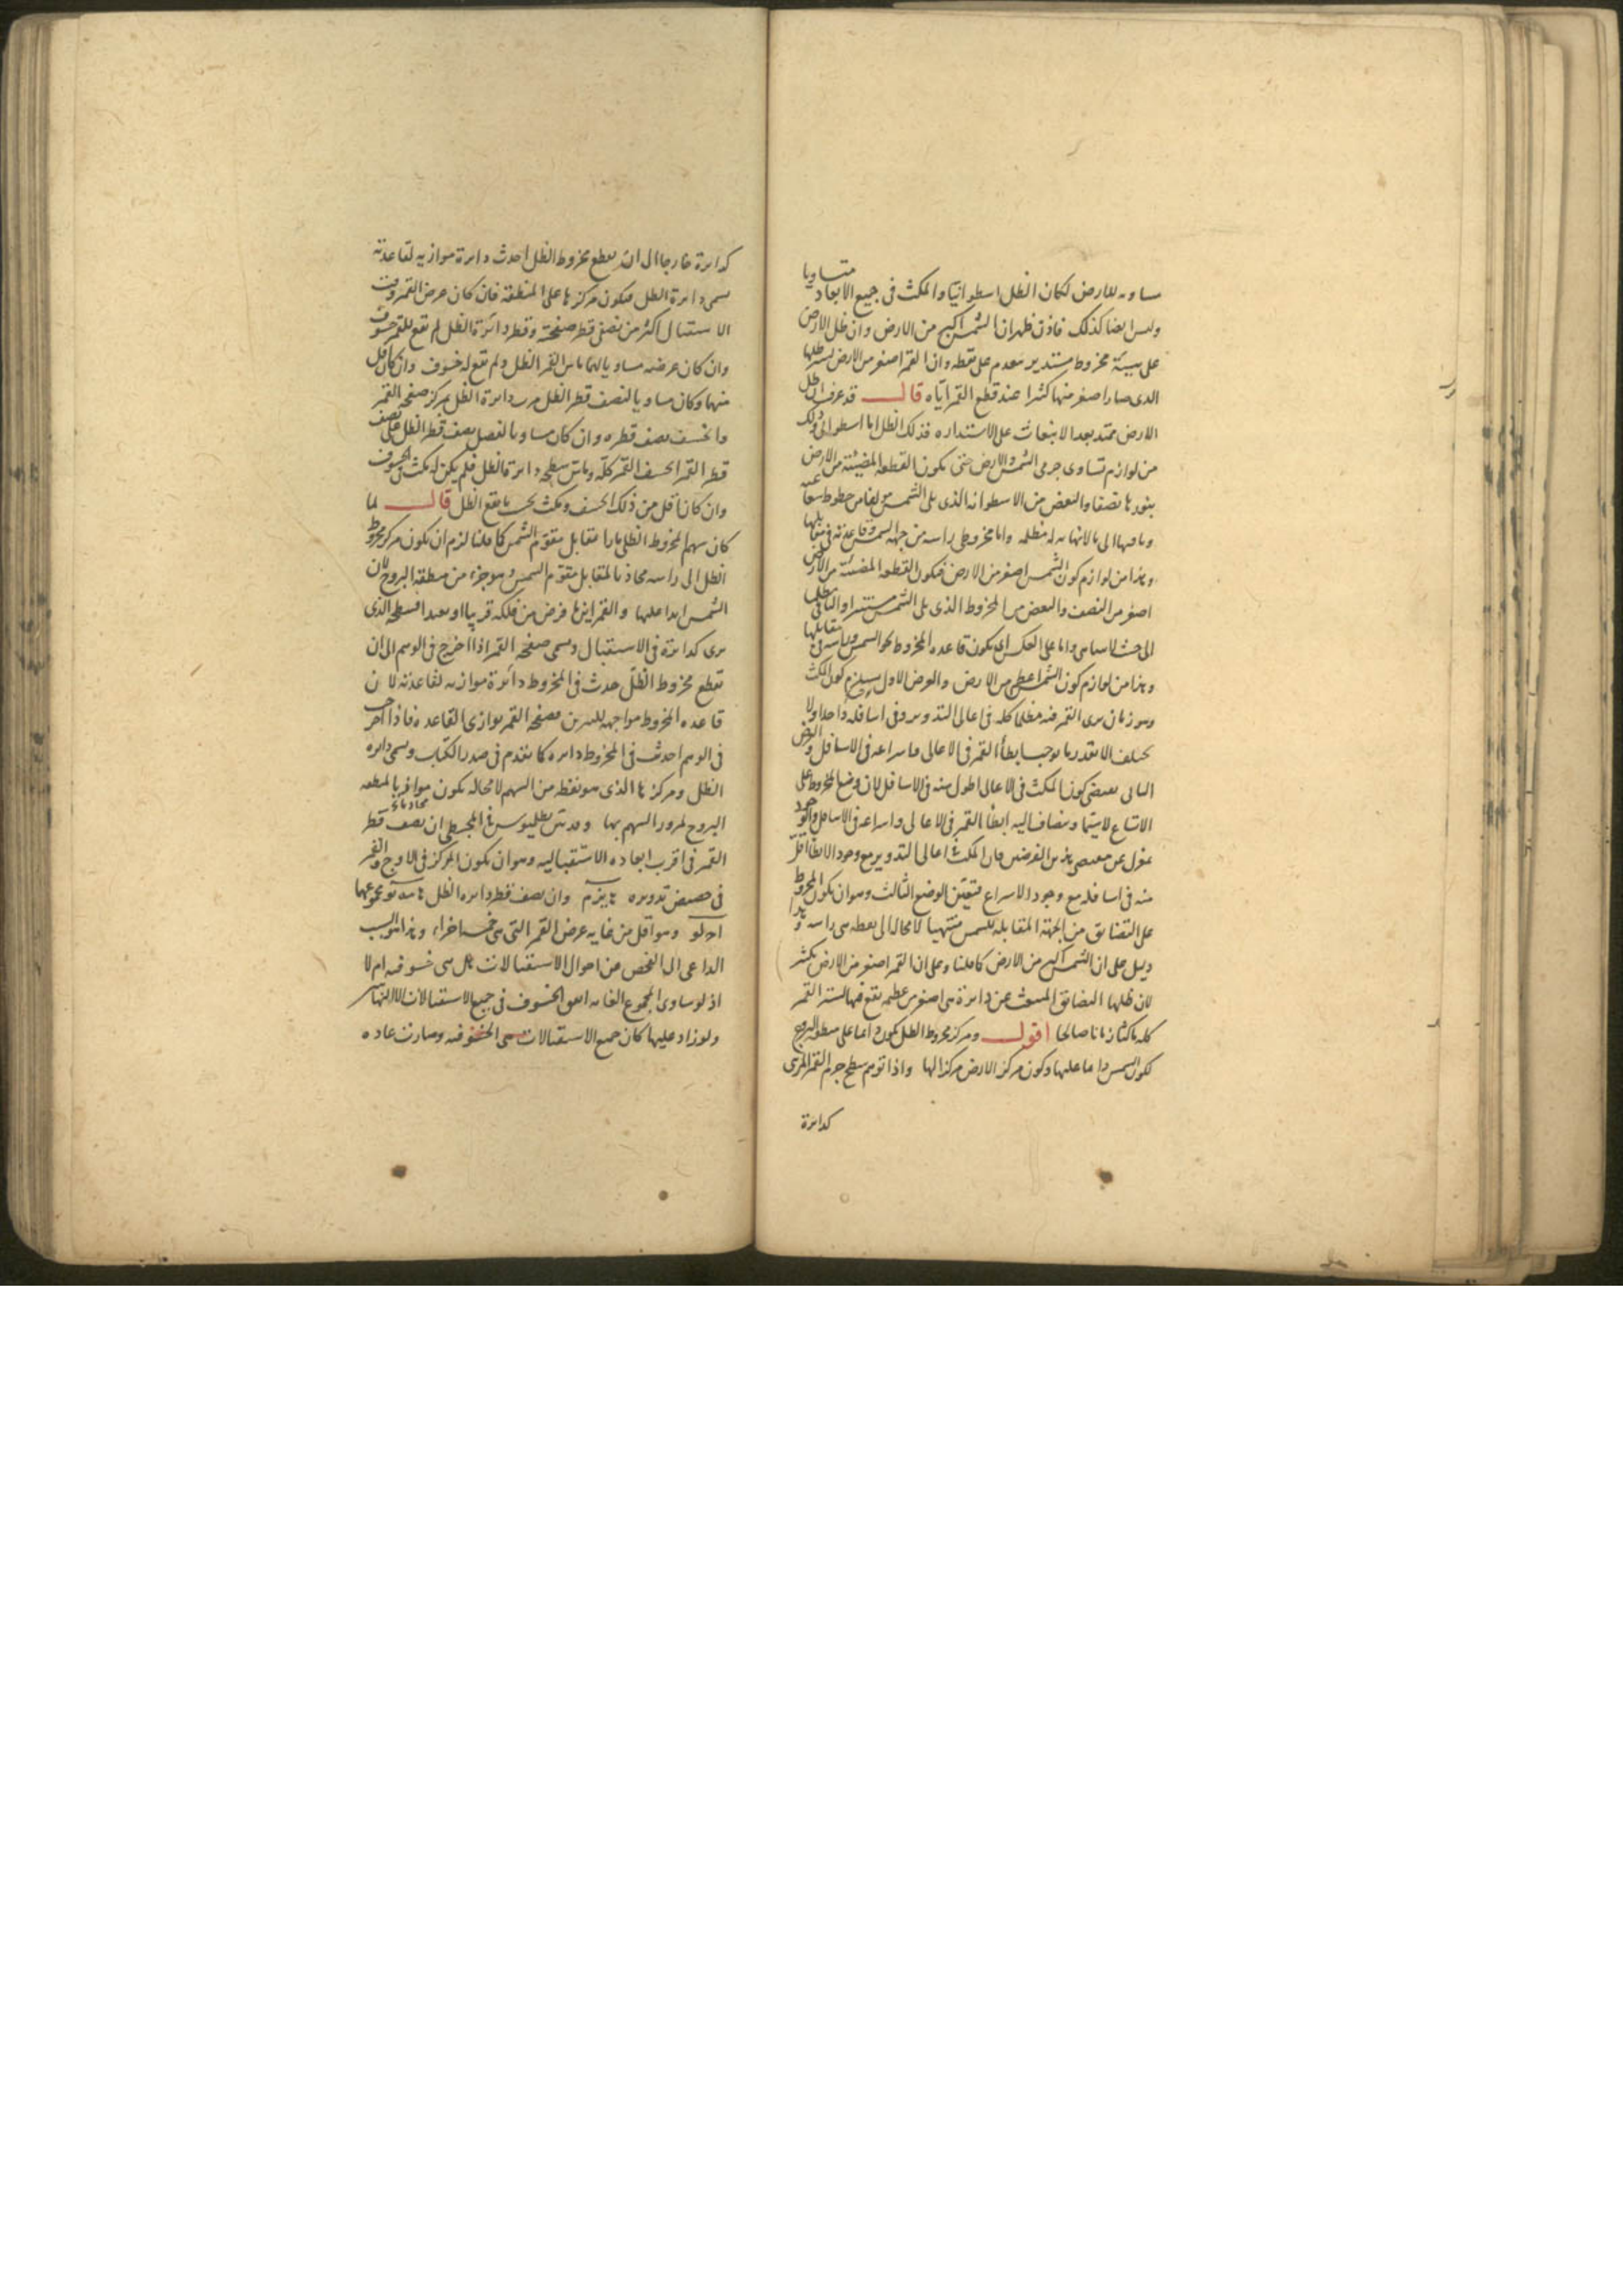 مساويه للارض لكان الظل اسطوانيا والمكث فى جميع الابعاد متساويا
وليس ايضا كذلك فاذن ظهر ان الشمس اكبر من الارض وان ظل الارض
على هيئة مخروط مستدير ينعدم على نقطه وان القمر اصغر من الارض لستر ظلها
الذى صار اصغر منها كثيرا عند قطع القمر اياه قال قد عرفت ان ظل
الارض ممتد بعد الانبعاث على الاستداره فذلك الظل اما اسطوانى وذلك
من لوازم تساوى جرمى الشمس والارض حتى يكون القطعه المضيئة من الارض
بنورها نصفا والبعض من الاسطوانه الذى يلى الشمس
وباقيها الى ما لا نهايه له مظلمه واما مخروطى راسه من جهه الشمس وقاعدته فى مقابلها
وهذا من لوازم كون الشمس اصغر من الارض فيكون القطعه المضيئة من الارض
اصغر من النصف والبعض من المخروط الذى يلى الشمس مستنيرا والباقى مظلما
الى حيث لا يتناهى واما على العكس اى يكون قاعده المخروط نحو الشمس وراسه فى مقابلها
وهذا من لوازم كون الشمس اعظم من الارض والفرض الاول يستلزم كون المكث
وهو زمان يرى القمر فيه مظلما كله فى اعالى التدوير وفى اسافله واحدا ولا
يختلف الا بقدر ما يوجب ابطأ القمر فى الاعالى واسراعه فى الاسافل والفرض
الثانى يقتضى كون المكث فى الاعالى اطول منه فى الاسافل لان وضع المخروط على
الاتساع لاسيما وينضاف اليه ابطأ القمر فى الاعالى واسراعه فى الاسافل والوجود
بمعزل عن مقتضى هذين الفرضين فان المكث فى اعالى التدوير مع وجود الابطا اقل
منه فى اسافله مع وجود الاسراع فتعين الوضع الثالث وهو ان يكون المخروط
على التضايق من الجهة المقابلة للشمس منتهيا لا محاله الى نقطه هى راسه وهذا
دليل على ان الشمس اكبر من الارض كما قلنا وعلى ان القمر اصغر من الارض بكثير
لان ظلها المضايق المنبعث عن دائرة هى اصغر من عظيمه تقع فيها لستر القمر
كله ماكثا زمانا صالحا اقول ومركز مخروط الظل يكون دائما على منطقه البروج
لكون الشمس دائما عليها وكون مركز الارض مركزا لها واذا توهم سطح جرم القمر المرئى
كدائرة
كدائرة خارجا الى ان يقطع مخروط الظل احدث دائرة موازيه لقاعدته
يسمى دائرة الظل فيكون مركزها على المنطقه فان كان عرض القمر وقت
الاستقبال اكثر من نصفى قطر صفحته وقطر دائرة الظل لم تقع للقمر خسوف
وان كان عرضه مساويا لهما ماس القمر الظل ولم تقع له خسوف وان كان اقل
منهما وكان مساويا لنصف قطر الظل مرت دائرة الظل بمركز صفحه القمر
وانخسف نصف قطره وان كان مساويا لفضل نصف قطر الظل على نصف
قطر القمر انخسف القمر كله وماس سطحه دائرة الظل فلم يكن له مكث فى الخسوف
وان كان اقل من ذلك انخسف ومكث بحسب ما يقع فى الظل قال لما
كان سهم المخروط الظلى مارا مقابل مقوم الشمس كما قلنا لزم ان يكون مركز مخروط
الظل الى راسه محاذيا لمقابل مقوم الشمس وهو جزء من منطقة البروج لان
الشمس ابدا عليها والقمر اينما فرض من فلكه قريبا او بعيدا لسطحه الذى
يرى كدائرة فى الاستقبال ويسمى صفحه القمر اذا اخرج فى الوهم الى ان
تقطع مخروط الظل حدث فى المخروط دائرة موازيه لقاعدته لان
قاعده المخروط مواجهه للنيرين فصفحه القمر يوازى القاعده فاذا اخرجت
فى الوهم احدثت فى المخروط دائره كما تقدم فى صدر الكتاب ويسمى دائره
الظل ومركزها الذى هو نقطه من السهم لا محاله يكون موافيا محاذيا لمنطقه
البروج لمرور السهم بها وقد تبين بطليوس فى المجسطى ان نصف قطر
القمر فى اقرب ابعاده الاستقباليه وهو ان يكون المركز فى الاوج والقمر
فى حضيض تدويره وان نصف قطر دائره الظل مجموعهما
وهو اقل من غايه عرض القمر التى هى خمسه اجزاء وهذا هو السبب
الداعى الى الفحص عن احوال الاستقبالات هل هى خسوفيه ام لا
اذ لو ساوى المجموع الغايه اتفق الخسوف فى جميع الاستقبالات الا النهايتين
ولو زاد عليها كان جميع الاستقبالات هى الخسوفيه وصارت عاده